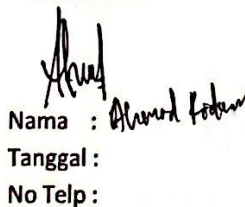 Nama : Ahmad
Tanggal :
No Telp :